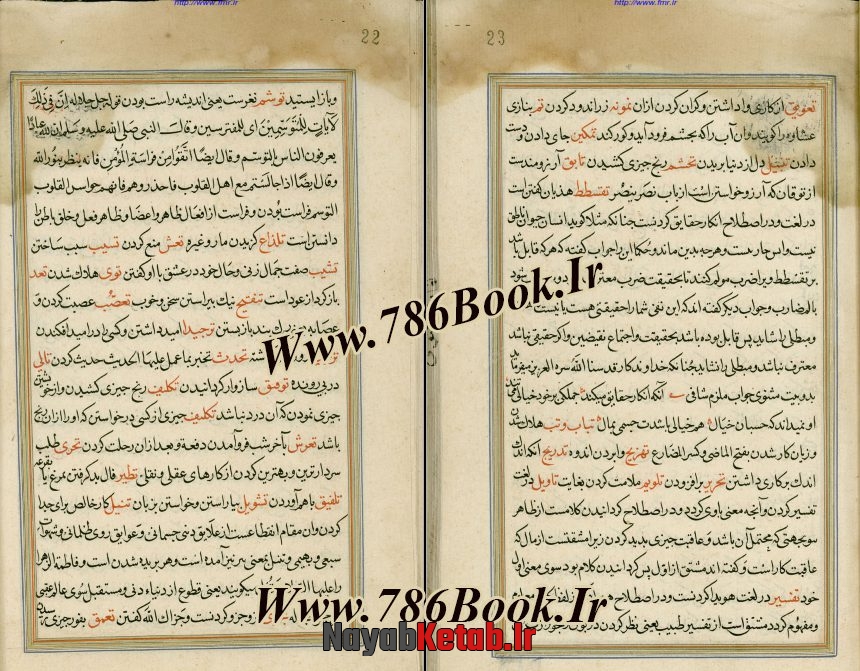 http://www.fmr.ir
22
وباز ایستید توشم تفرست یعنی اندیشه راست بودن قوله جل جلاله ان فی ذلک
لآیات للمتوسمین ای للمتفرسین وقال النبی صلی الله علیه وسلم ان لله عبادا
یعرفون الناس بالتوسم وقال ایضا اتقوا من فراسة المؤمن فانه ینظر بنور الله
وقال ایضا اذا جالستم مع اهل القلوب فاحذروهم فانهم جواسس القلوب
التوسم فراست بودن و فراست از افعال ظاهر واعضا وظاهر فعل وخلق باطن را
دانستن است تلذاع کزیدن مار وغیره تعش منع کردن تسبب سبب ساختن
تشبب صفت جمال زنی وحال خود در عشق با او کفتن توی هلاک شدن تعد
باز کرد از عود است تنقیح نیک پیراستن سخن وخوب تعصب عصبت کردن و
بستن ترجیدا امید داشتن وکسی را در امید افکندن
تحدث تخبر بما عمل علیها الحدیث حدیث کردن تالی
در پی رونده توفیق سازوار کردانیدن تکلیف رنج چیزی کشیدن واز خویشتن
چیزی نمودن که آن در نباشد تکلیف چیزی از کسی درخواستن که او را از آن رنج
باشد تعرش بآخر شب فرو آمدن دفعة وبعد از آن رحلت کردن تحری طلب
سزاوارترین وبهترین کردن از کارهای عقلی ونقلی تطیر فال بد کرفتن بمرغ یا بقرعه
تلفیق باهم آوردن تشویل بیاراستن وخواستن بزبان تبتیل کار خالص برای خدا
کردن وان مقام انقطاعست از علایق دنی جسمانی وعوایق روی ظلمانی وشهوات
سبعی وبهیمی وتبتل بمعنی ببر نیز آمده است وهر بریده شدن است وفاطمة الزهرا
را علیها میکویند یعنی قطوع از دنیاء دنی ومستقبل بسوی عالم عقبی
وجزو کردنست وجزاک الله کفتن تعمق بغور چیزی رسیدن
http://www.fmr.ir
23
تعویق از کاری وا داشتن وکران کردن از آن نمونه زراندود کردن قم بنازی
عشاوه را کویند وان آب را که بچشم فرود آید وکور کند تمکین جای دادن ودست
دادن تبتیل دل از دنیا بریدن تجشم رنج چیزی کشیدن تایق آرزومندست
از توقان که آرزو خواستن است از باب نصر ینصر تفسطط هذیان کفتن است
در لغت ودر اصطلاح انکار حقایق کردنست چنانکه مثلا کوید انسان حیوان ناطق
نیست واس جار بست وهرچه بدین ماند وحکما این را جواب کفته که هر که قابل باشد
بر تفسطط ویرا ضرب مولم کنند تا بحقیقت ضرب معترف
بالمضارب وجواب دیکر کفته اند که این نفی شما را حقیقتی هست یا نیست
ومبطلی را شاید پس قابل بوده باشد بحقیقت واجتماع نقیضین واکر حقیقتی نباشد
معترف نباشد ومبطلی را نشاید چنانکه خداوندکار قدسنا الله سره العزیز میفرماید
بدو بیت مثنوی جواب ملزم شافی آنکه انکار حقایق میکند جملکی بر خود خیالی می تند
او نیداند که حسبان خیال هر خیالی باشدت حسی بمال تباب وتب هلاک شدن
وزیان کار شدن بفتح الماضی وکسر المضارع تهزیج وابردن اندوه تدریج اندک اندک
اندک بر کاری داشتن تحریر برافزودن تلویم ملامت کردن بغایت تاویل در لغت
تفسیر کردن وآنچه معنی باوی کردد ودر اصطلاح کردانیدن کلامست از ظاهر
سوی جهتی که محتمل آن باشد وعاقبت چیزی بدید کردن زیرا مشتقست از مال که
عاقبت کار است وکفته اند مشتق از اول پس کردانیدن کلام بود سوی معنی اول
خود تفسیر در لغت هویدا کردنست ودر اصطلاح
ومفهوم کردد مشتق است از تفسیر طبیب یعنی نظر کردن
Www.786Book.Ir
Www.786Book.Ir
NayabKetab.Ir